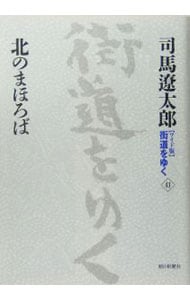 司馬遼太郎
[ワイド版]
街道をゆく
41
北のまほろば
街道をゆく
朝日新聞社